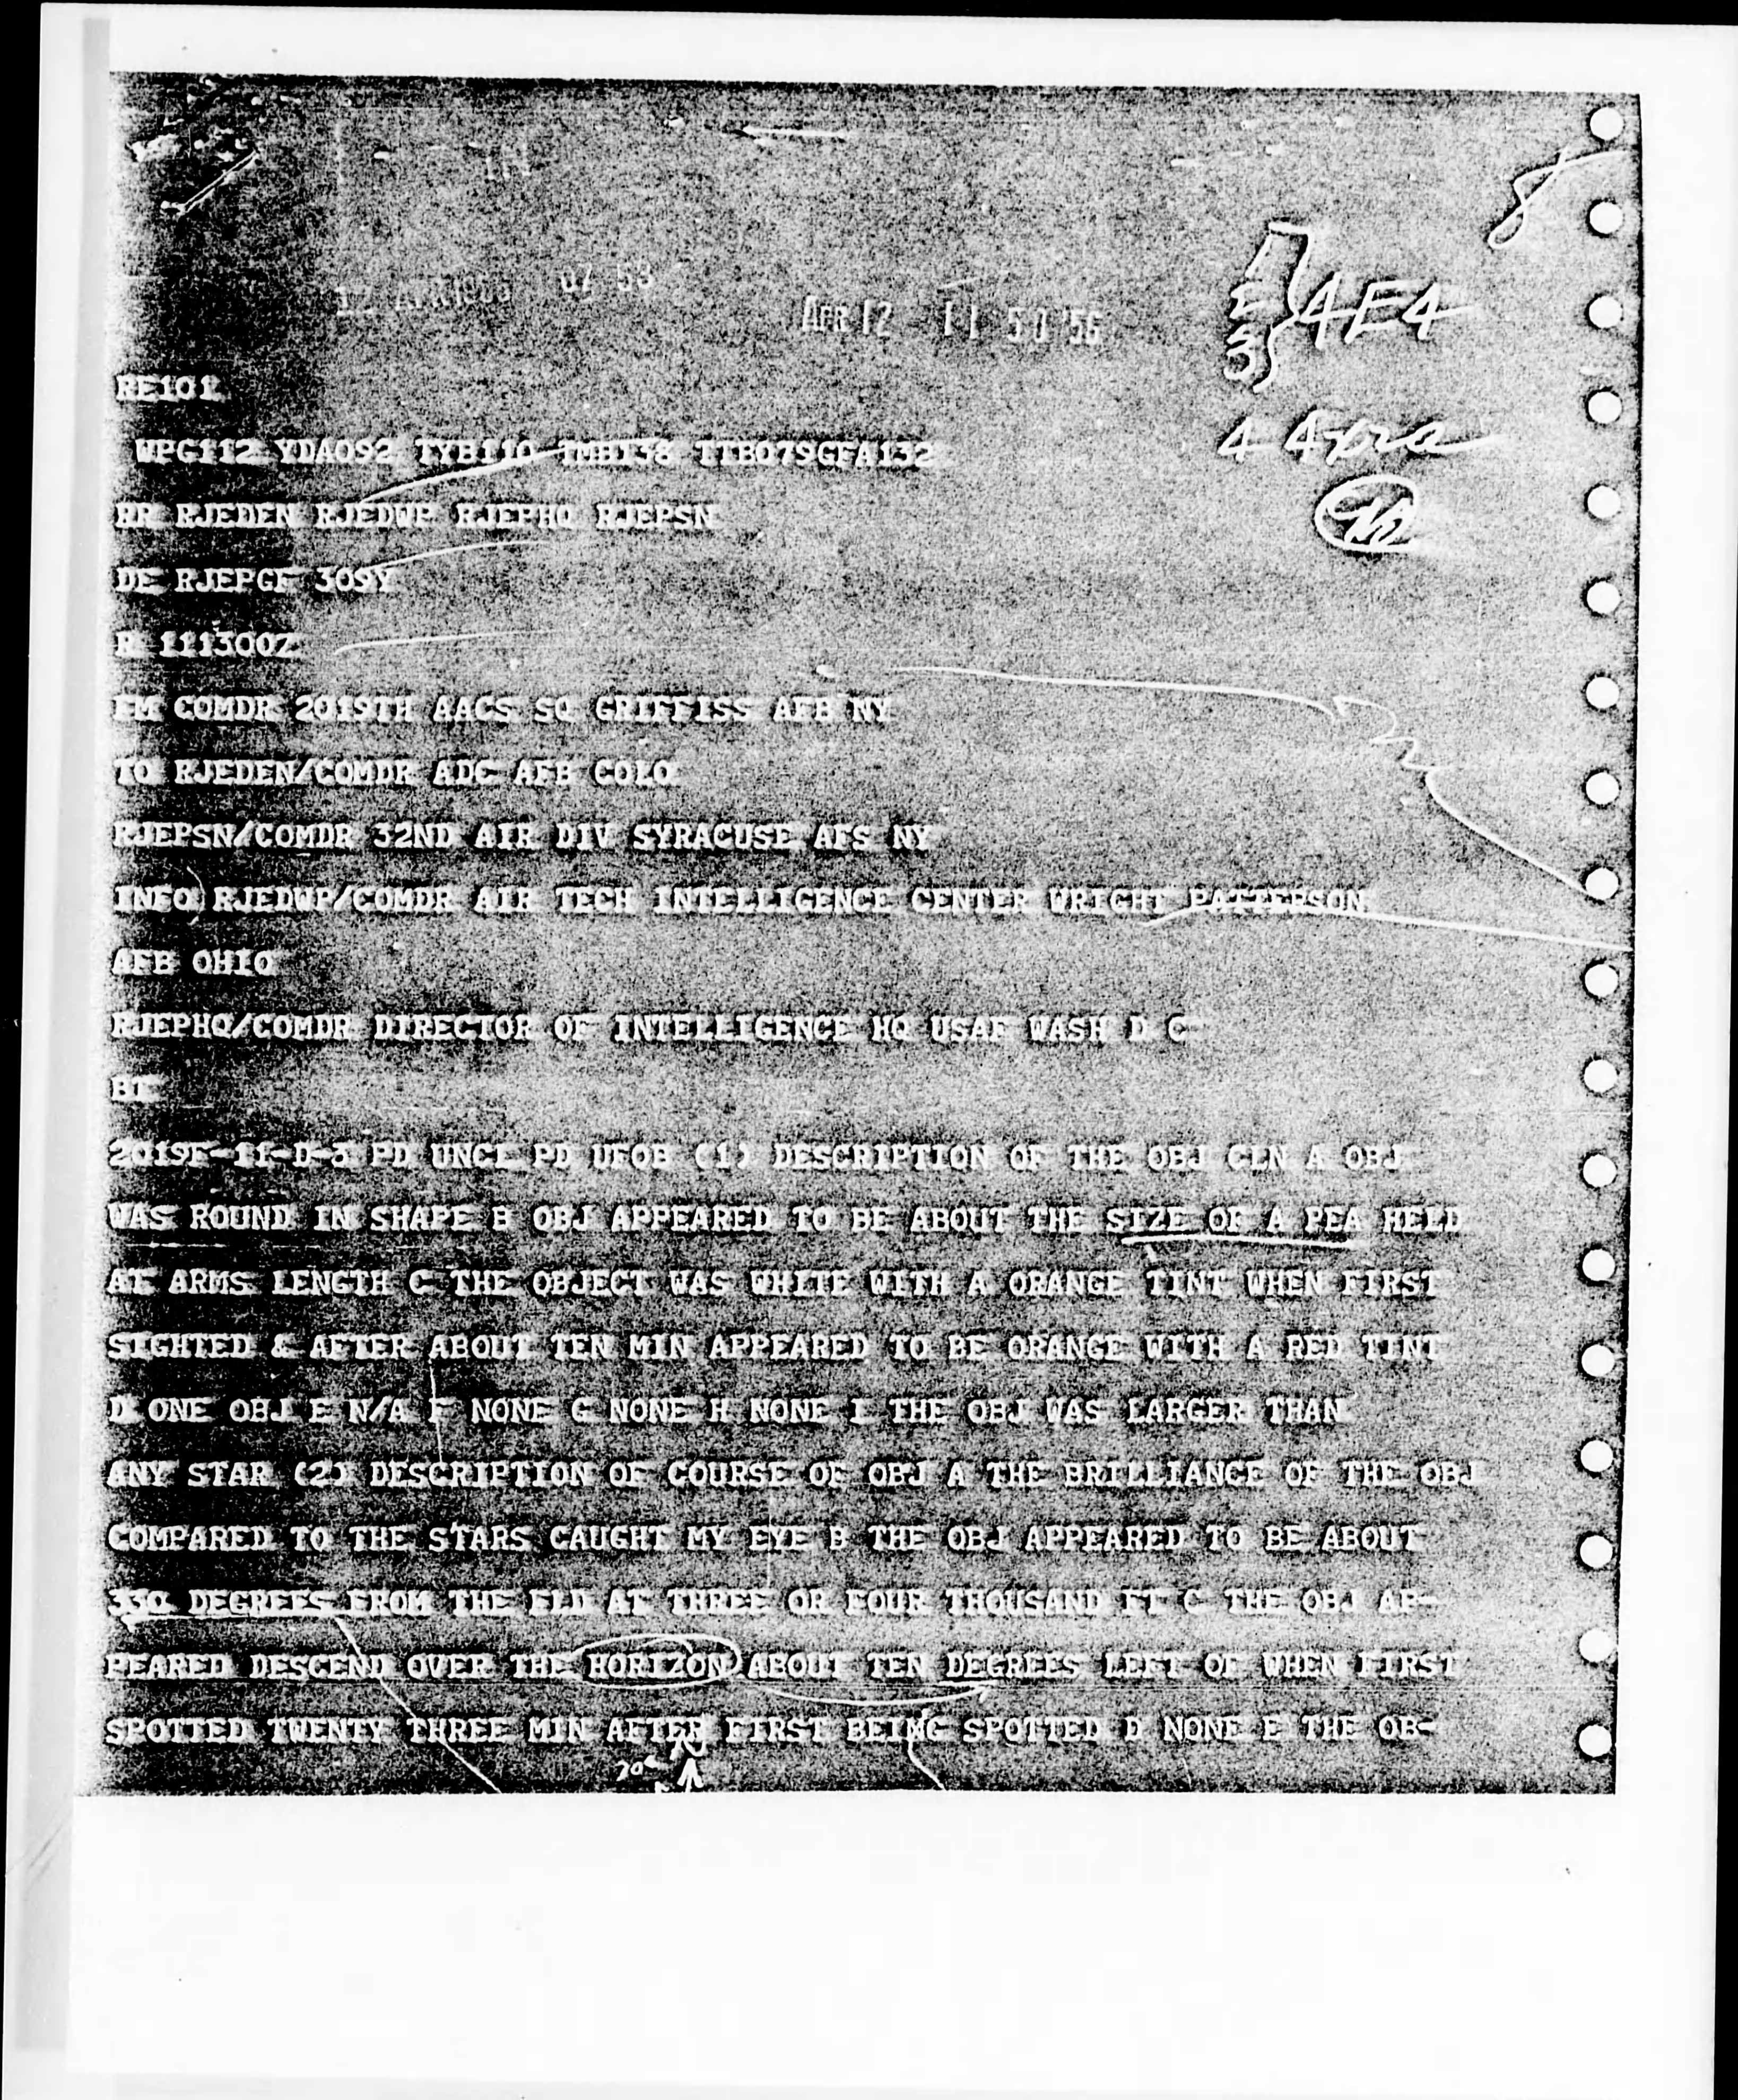 APR 12 11 50 '56
4E4
RE101
WPG112 YDA092 TYB110 TMB138 TTB079GFA132
RR RJEDEN RJEDWP RJEPHQ RJEPSN
DE RJEPGF 309Y
R 111300Z
FM COMDR 2019TH AACS SQ GRIFFISS AFB NY
TO RJEDEN/COMDR ADC AFB COLO
RJEPSN/COMDR 32ND AIR DIV SYRACUSE AFS NY
INFO RJEDWP/COMDR AIR TECH INTELLIGENCE CENTER WRIGHT PATTERSON
AFB OHIO
RJEPHQ/COMDR DIRECTOR OF INTELLIGENCE HQ USAF WASH D C
BT
PD UNCL PD UFOB (1) DESCRIPTION OF THE OBJ CLN A OBJ
WAS ROUND IN SHAPE B OBJ APPEARED TO BE ABOUT THE SIZE OF A PEA HELD
AT ARMS LENGTH C THE OBJECT WAS WHITE WITH A ORANGE TINT WHEN FIRST
SIGHTED & AFTER ABOUT TEN MIN APPEARED TO BE ORANGE WITH A RED TINT
D ONE OBJ E N/A F NONE G NONE H NONE I THE OBJ WAS LARGER THAN
ANY STAR (2) DESCRIPTION OF COURSE OF OBJ A THE BRILLIANCE OF THE OBJ
COMPARED TO THE STARS CAUGHT MY EYE B THE OBJ APPEARED TO BE ABOUT
330 DEGREES FROM THE FLD AT THREE OR FOUR THOUSAND FT C THE OBJ AP-
PEARED DESCEND OVER THE HORIZON ABOUT TEN DEGREES LEFT OF WHEN FIRST
SPOTTED TWENTY THREE MIN AFTER FIRST BEING SPOTTED D NONE E THE OB-